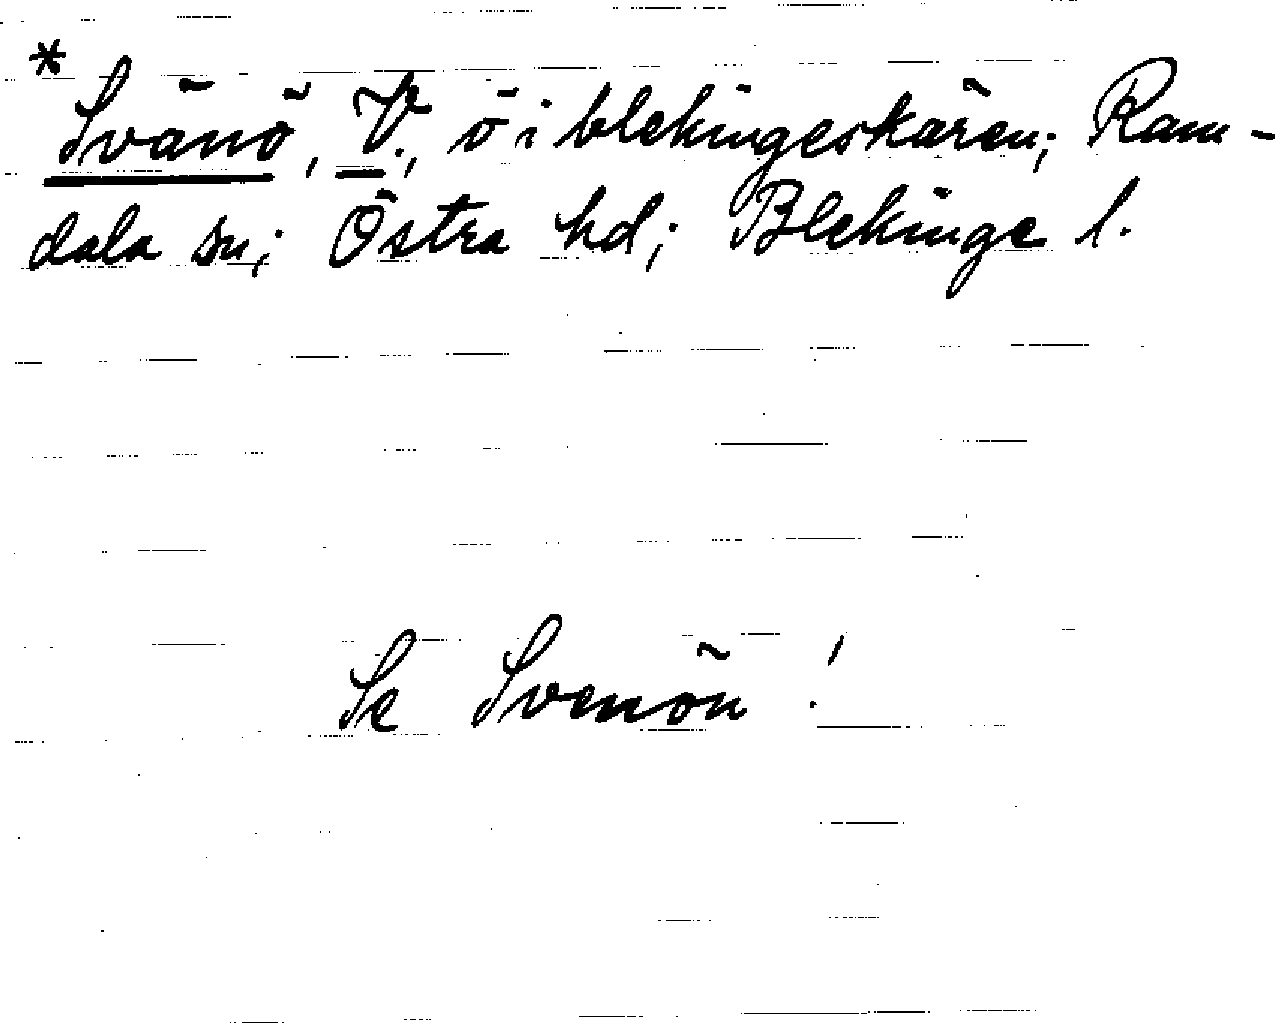 * Svänö, V., ö i blekingeskären; Ram-
dala sn; Östra hd; Blekinge l.
Se Svenön!